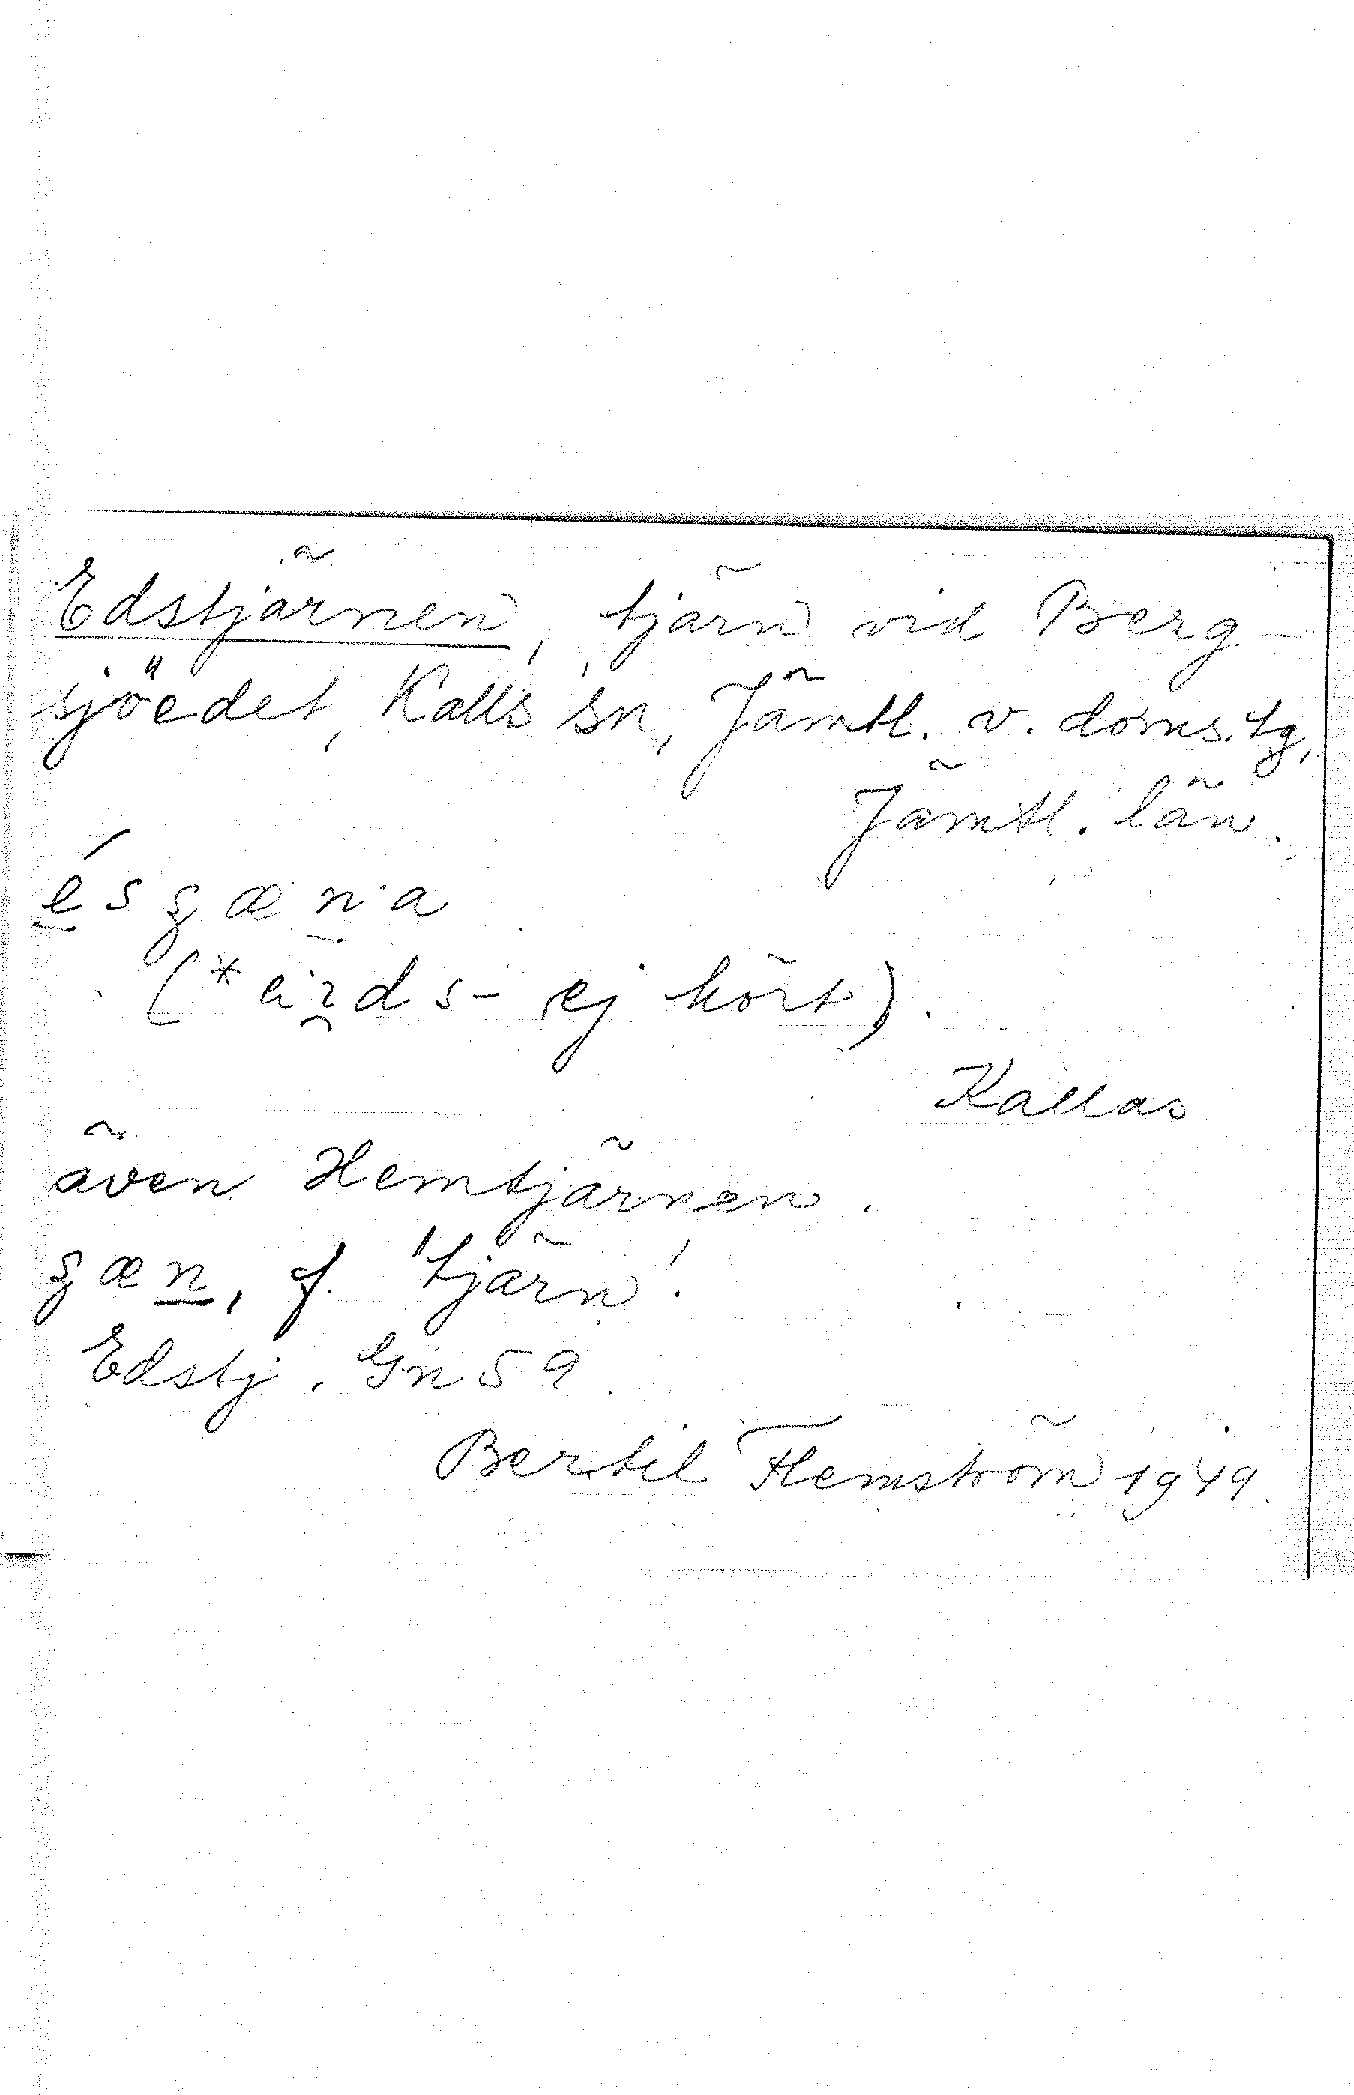 Edstjärnen, tjärn vid Berg-
sjöedet, Kalls sn, Jämtl. v. doms. tg,
Jämtl. län.
(* ej hört).
Kallas
även Hemtjärnen.
f. 'tjärn'.
Edstj. Gn 59
Bertil Flemström 1949.